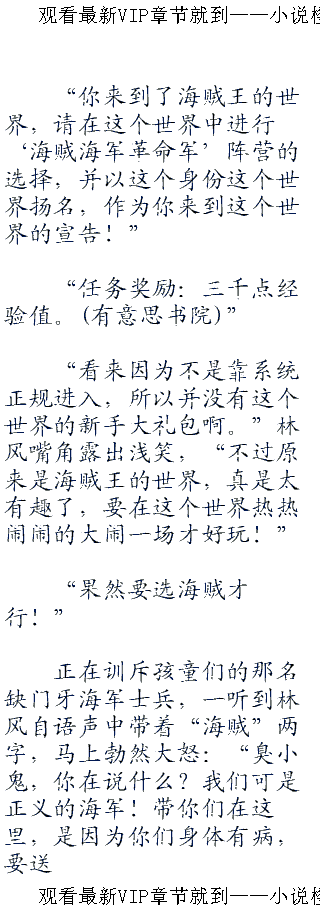 观看最新VIP章节就到——小说检
“你来到了海贼王的世
界，请在这个世界中进行
‘海贼海军革命军’阵营的
选择，并以这个身份这个世
界扬名，作为你来到这个世
界的宣告！”
“任务奖励：三千点经
验值。(有意思书院)”
“看来因为不是靠系统
正规进入，所以并没有这个
世界的新手大礼包啊。”林
风嘴角露出浅笑，“不过原
来是海贼王的世界，真是太
有趣了，要在这个世界热热
闹闹的大闹一场才好玩！”
“果然要选海贼才
行！”
正在训斥孩童们的那名
缺门牙海军士兵，一听到林
风自语声中带着“海贼”两
字，马上勃然大怒：“臭小
鬼，你在说什么？我们可是
正义的海军！带你们在这
里，是因为你们身体有病，
要送
观看最新VIP章节就到——小说检